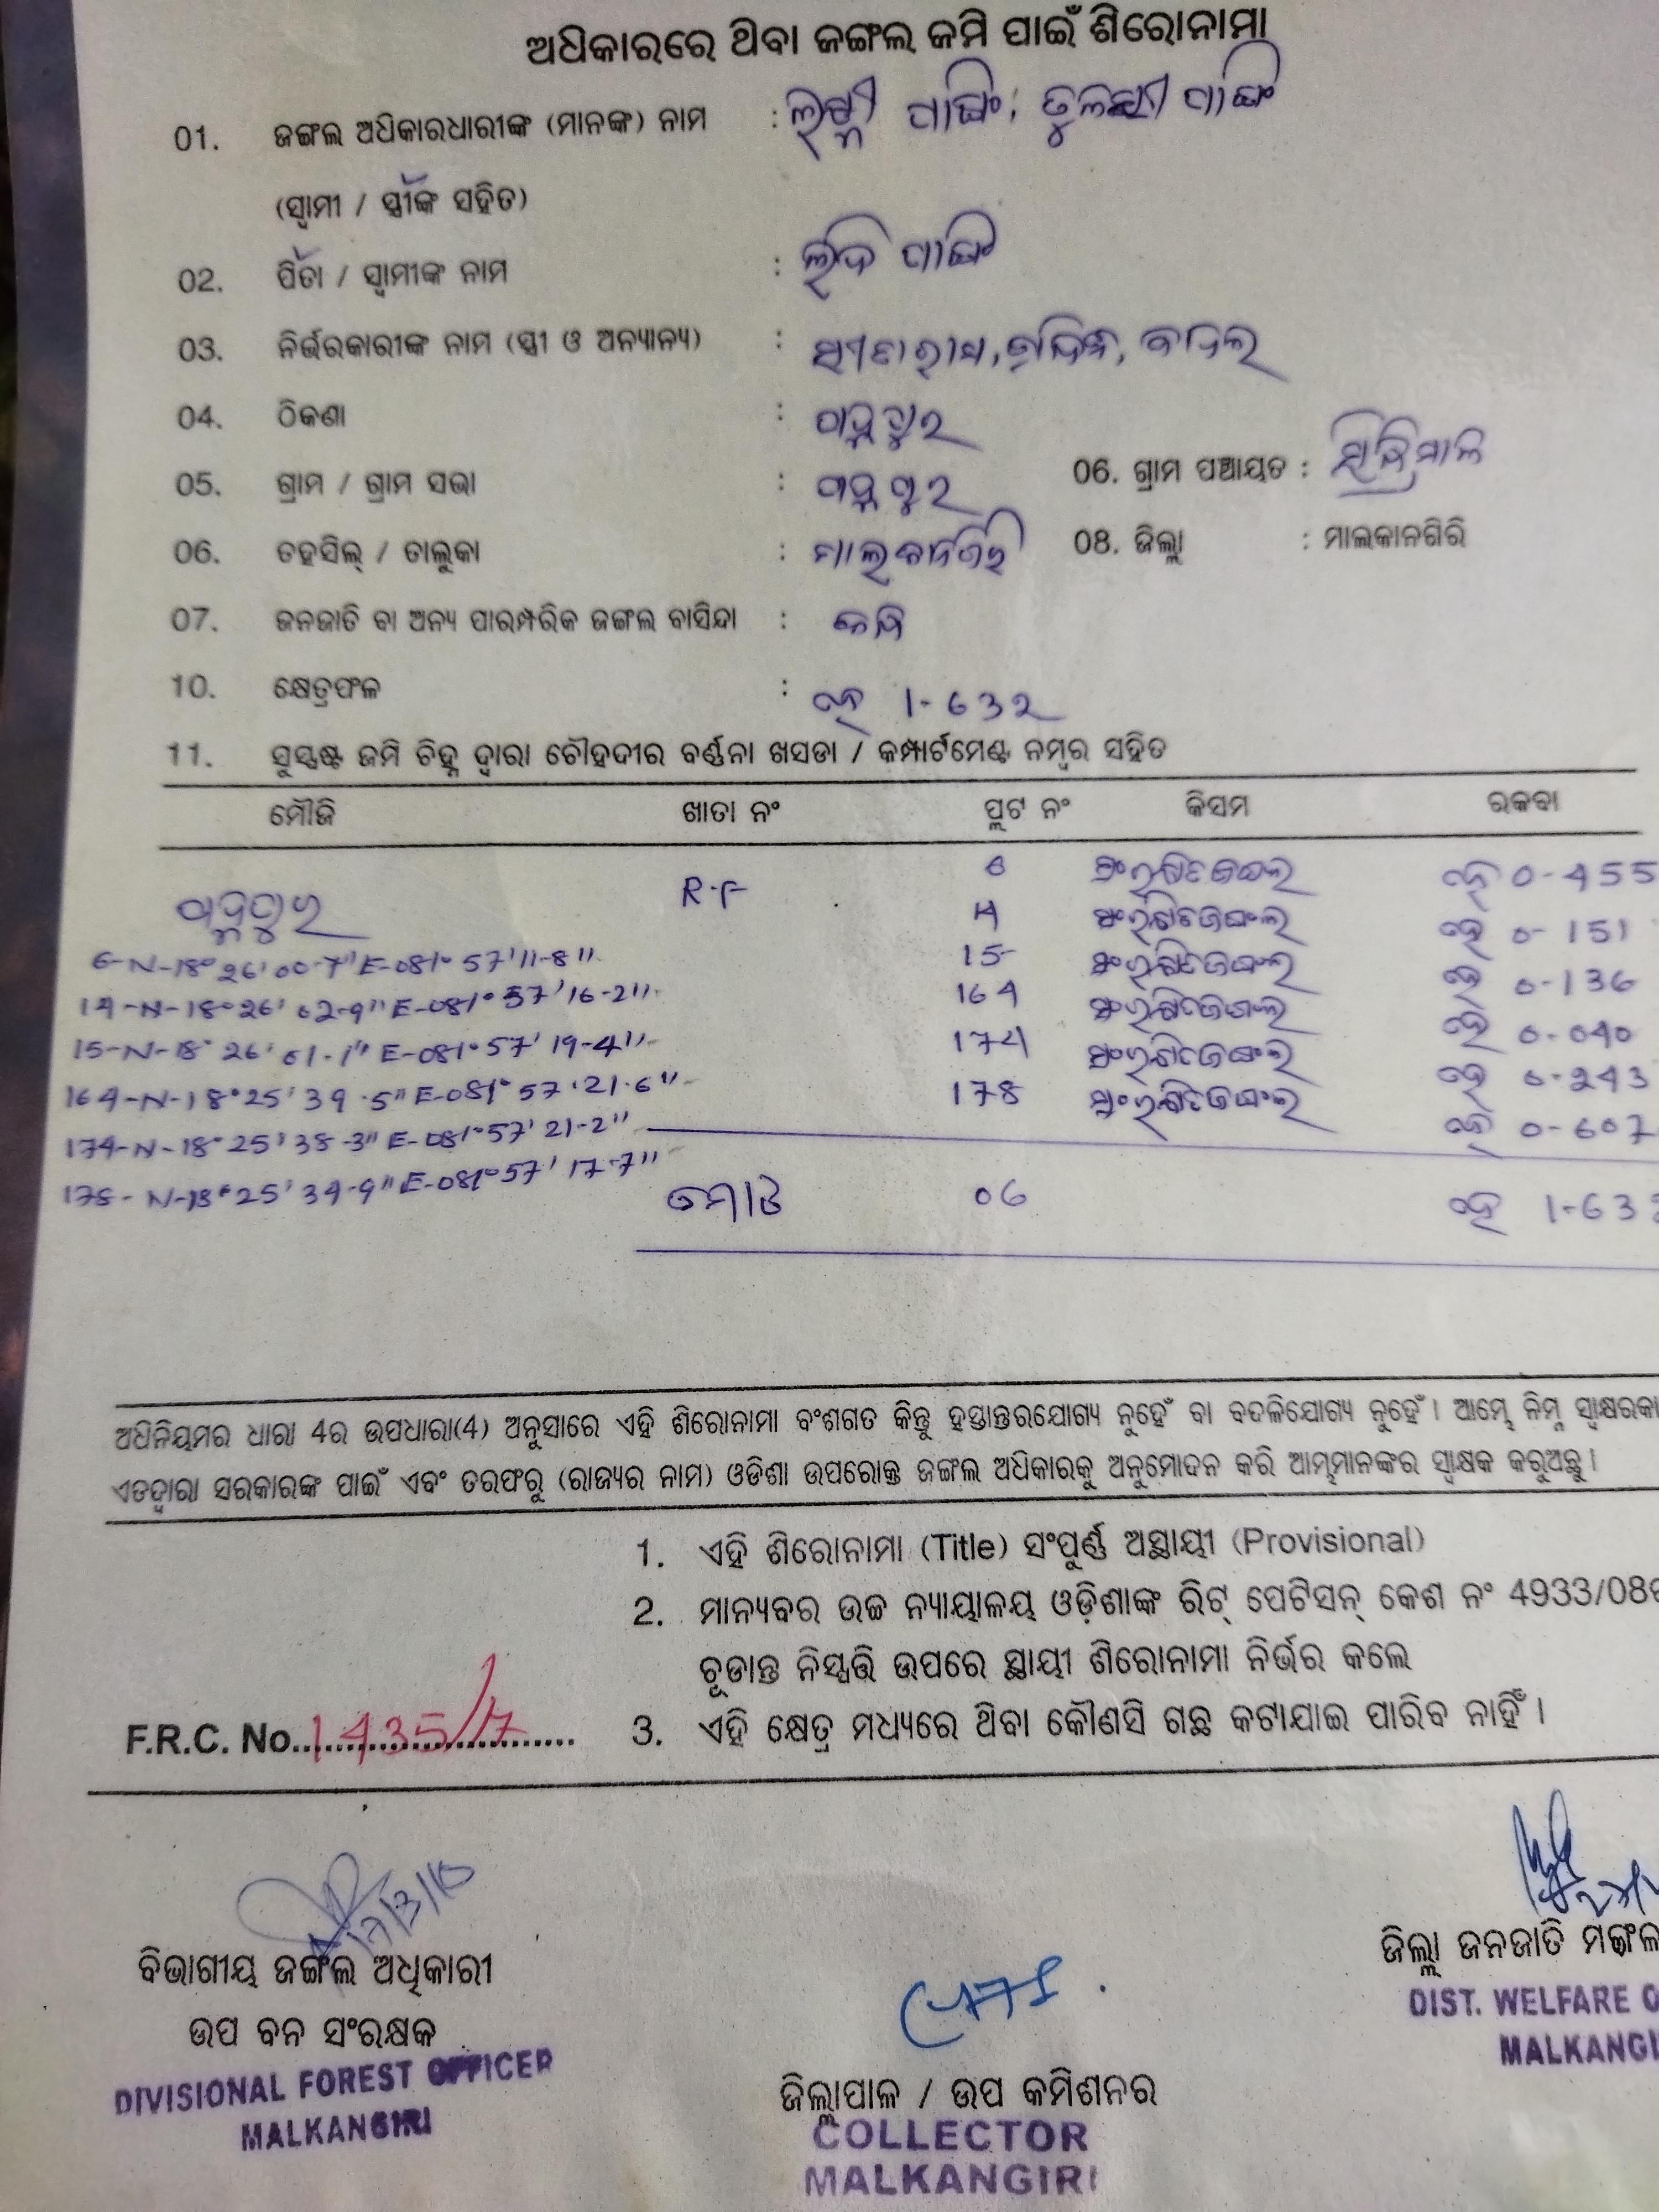 ଅଧିକାରରେ ଥିବା ଜଙ୍ଗଲ ଜମି ପାଇଁ ଶିରୋନାମା
01. ଜଙ୍ଗଲ ଅଧିକାରଧାରୀଙ୍କ (ମାନଙ୍କ) ନାମ :
(ସ୍ୱାମୀ / ସ୍ତ୍ରୀଙ୍କ ସହିତ)
02. ପିତା / ସ୍ୱାମୀଙ୍କ ନାମ :
03. ନିର୍ଭରକାରୀଙ୍କ ନାମ (ସ୍ତ୍ରୀ ଓ ଅନ୍ୟାନ୍ୟ) :
04. ଠିକଣା :
05. ଗ୍ରାମ / ଗ୍ରାମ ସଭା : 06. ଗ୍ରାମ ପଞ୍ଚାୟତ :
06. ତହସିଲ୍ / ତାଲୁକା : ମାଲକାନଗିରି 08. ଜିଲ୍ଲା : ମାଲକାନଗିରି
07. ଜନଜାତି ବା ଅନ୍ୟ ପାରମ୍ପରିକ ଜଙ୍ଗଲ ବାସିନ୍ଦା :
10. କ୍ଷେତ୍ରଫଳ : ହେ 1-632
11. ସୁସ୍ପଷ୍ଟ ଜମି ଚିହ୍ନ ଦ୍ୱାରା ଚୌହଦୀର ବର୍ଣ୍ଣନା ଖସଡା / କମ୍ପାର୍ଟମେଣ୍ଟ ନମ୍ବର ସହିତ
ମୌଜି ଖାତା ନଂ ପ୍ଲଟ ନଂ କିସମ ରକବା
R.F 6 ସଂରକ୍ଷିତ ଜଙ୍ଗଲ ହେ 0-455
14 ସଂରକ୍ଷିତ ଜଙ୍ଗଲ ହେ 0-151
6-N-18° 26' 00-7" E-081° 57' 11-8" 15 ସଂରକ୍ଷିତ ଜଙ୍ଗଲ ହେ 0-136
14-N-18° 26' 02-9" E-081° 57' 16-2" 164 ସଂରକ୍ଷିତ ଜଙ୍ଗଲ ହେ 0-040
15-N-18° 26' 01-1" E-081° 57' 19-4" 174 ସଂରକ୍ଷିତ ଜଙ୍ଗଲ ହେ 0-243
164-N-18° 25' 39.5" E-081° 57' 21.6" 178 ସଂରକ୍ଷିତ ଜଙ୍ଗଲ ହେ 0-607
174-N-18° 25' 38-3" E-081° 57' 21-2"
178-N-18° 25' 39-9" E-081° 57' 17-7" ମୋଟ 06 ହେ 1-632
ଅଧିନିୟମର ଧାରା 4ର ଉପଧାରା(4) ଅନୁସାରେ ଏହି ଶିରୋନାମା ବଂଶଗତ କିନ୍ତୁ ହସ୍ତାନ୍ତରଯୋଗ୍ୟ ନୁହେଁ ବା ବଦଳିଯୋଗ୍ୟ ନୁହେଁ । ଆମ୍ଭେ ନିମ୍ନ ସ୍ୱାକ୍ଷରକା
ଏତଦ୍ୱାରା ସରକାରଙ୍କ ପାଇଁ ଏବଂ ତରଫରୁ (ରାଜ୍ୟର ନାମ) ଓଡିଶା ଉପରୋକ୍ତ ଜଙ୍ଗଲ ଅଧିକାରକୁ ଅନୁମୋଦନ କରି ଆମ୍ଭମାନଙ୍କର ସ୍ୱାକ୍ଷକ କରୁଅଛୁ ।
1. ଏହି ଶିରୋନାମା (Title) ସଂପୂର୍ଣ୍ଣ ଅସ୍ଥାୟୀ (Provisional)
2. ମାନ୍ୟବର ଉଚ୍ଚ ନ୍ୟାୟାଳୟ ଓଡ଼ିଶାଙ୍କ ରିଟ୍ ପେଟିସନ୍ କେଶ ନଂ 4933/08
ଚୂଡାନ୍ତ ନିସ୍ପତ୍ତି ଉପରେ ସ୍ଥାୟୀ ଶିରୋନାମା ନିର୍ଭର କଲେ
F.R.C. No. 1435/17 3. ଏହି କ୍ଷେତ୍ର ମଧ୍ୟରେ ଥିବା କୌଣସି ଗଛ କଟାଯାଇ ପାରିବ ନାହିଁ ।
ବିଭାଗୀୟ ଜଙ୍ଗଲ ଅଧିକାରୀ
ଉପ ବନ ସଂରକ୍ଷକ
DIVISIONAL FOREST OFFICER
MALKANGIRI
ଜିଲ୍ଲାପାଳ / ଉପ କମିଶନର
COLLECTOR
MALKANGIRI
ଜିଲ୍ଲା ଜନଜାତି ମଙ୍ଗଳ
DIST. WELFARE O
MALKANGI